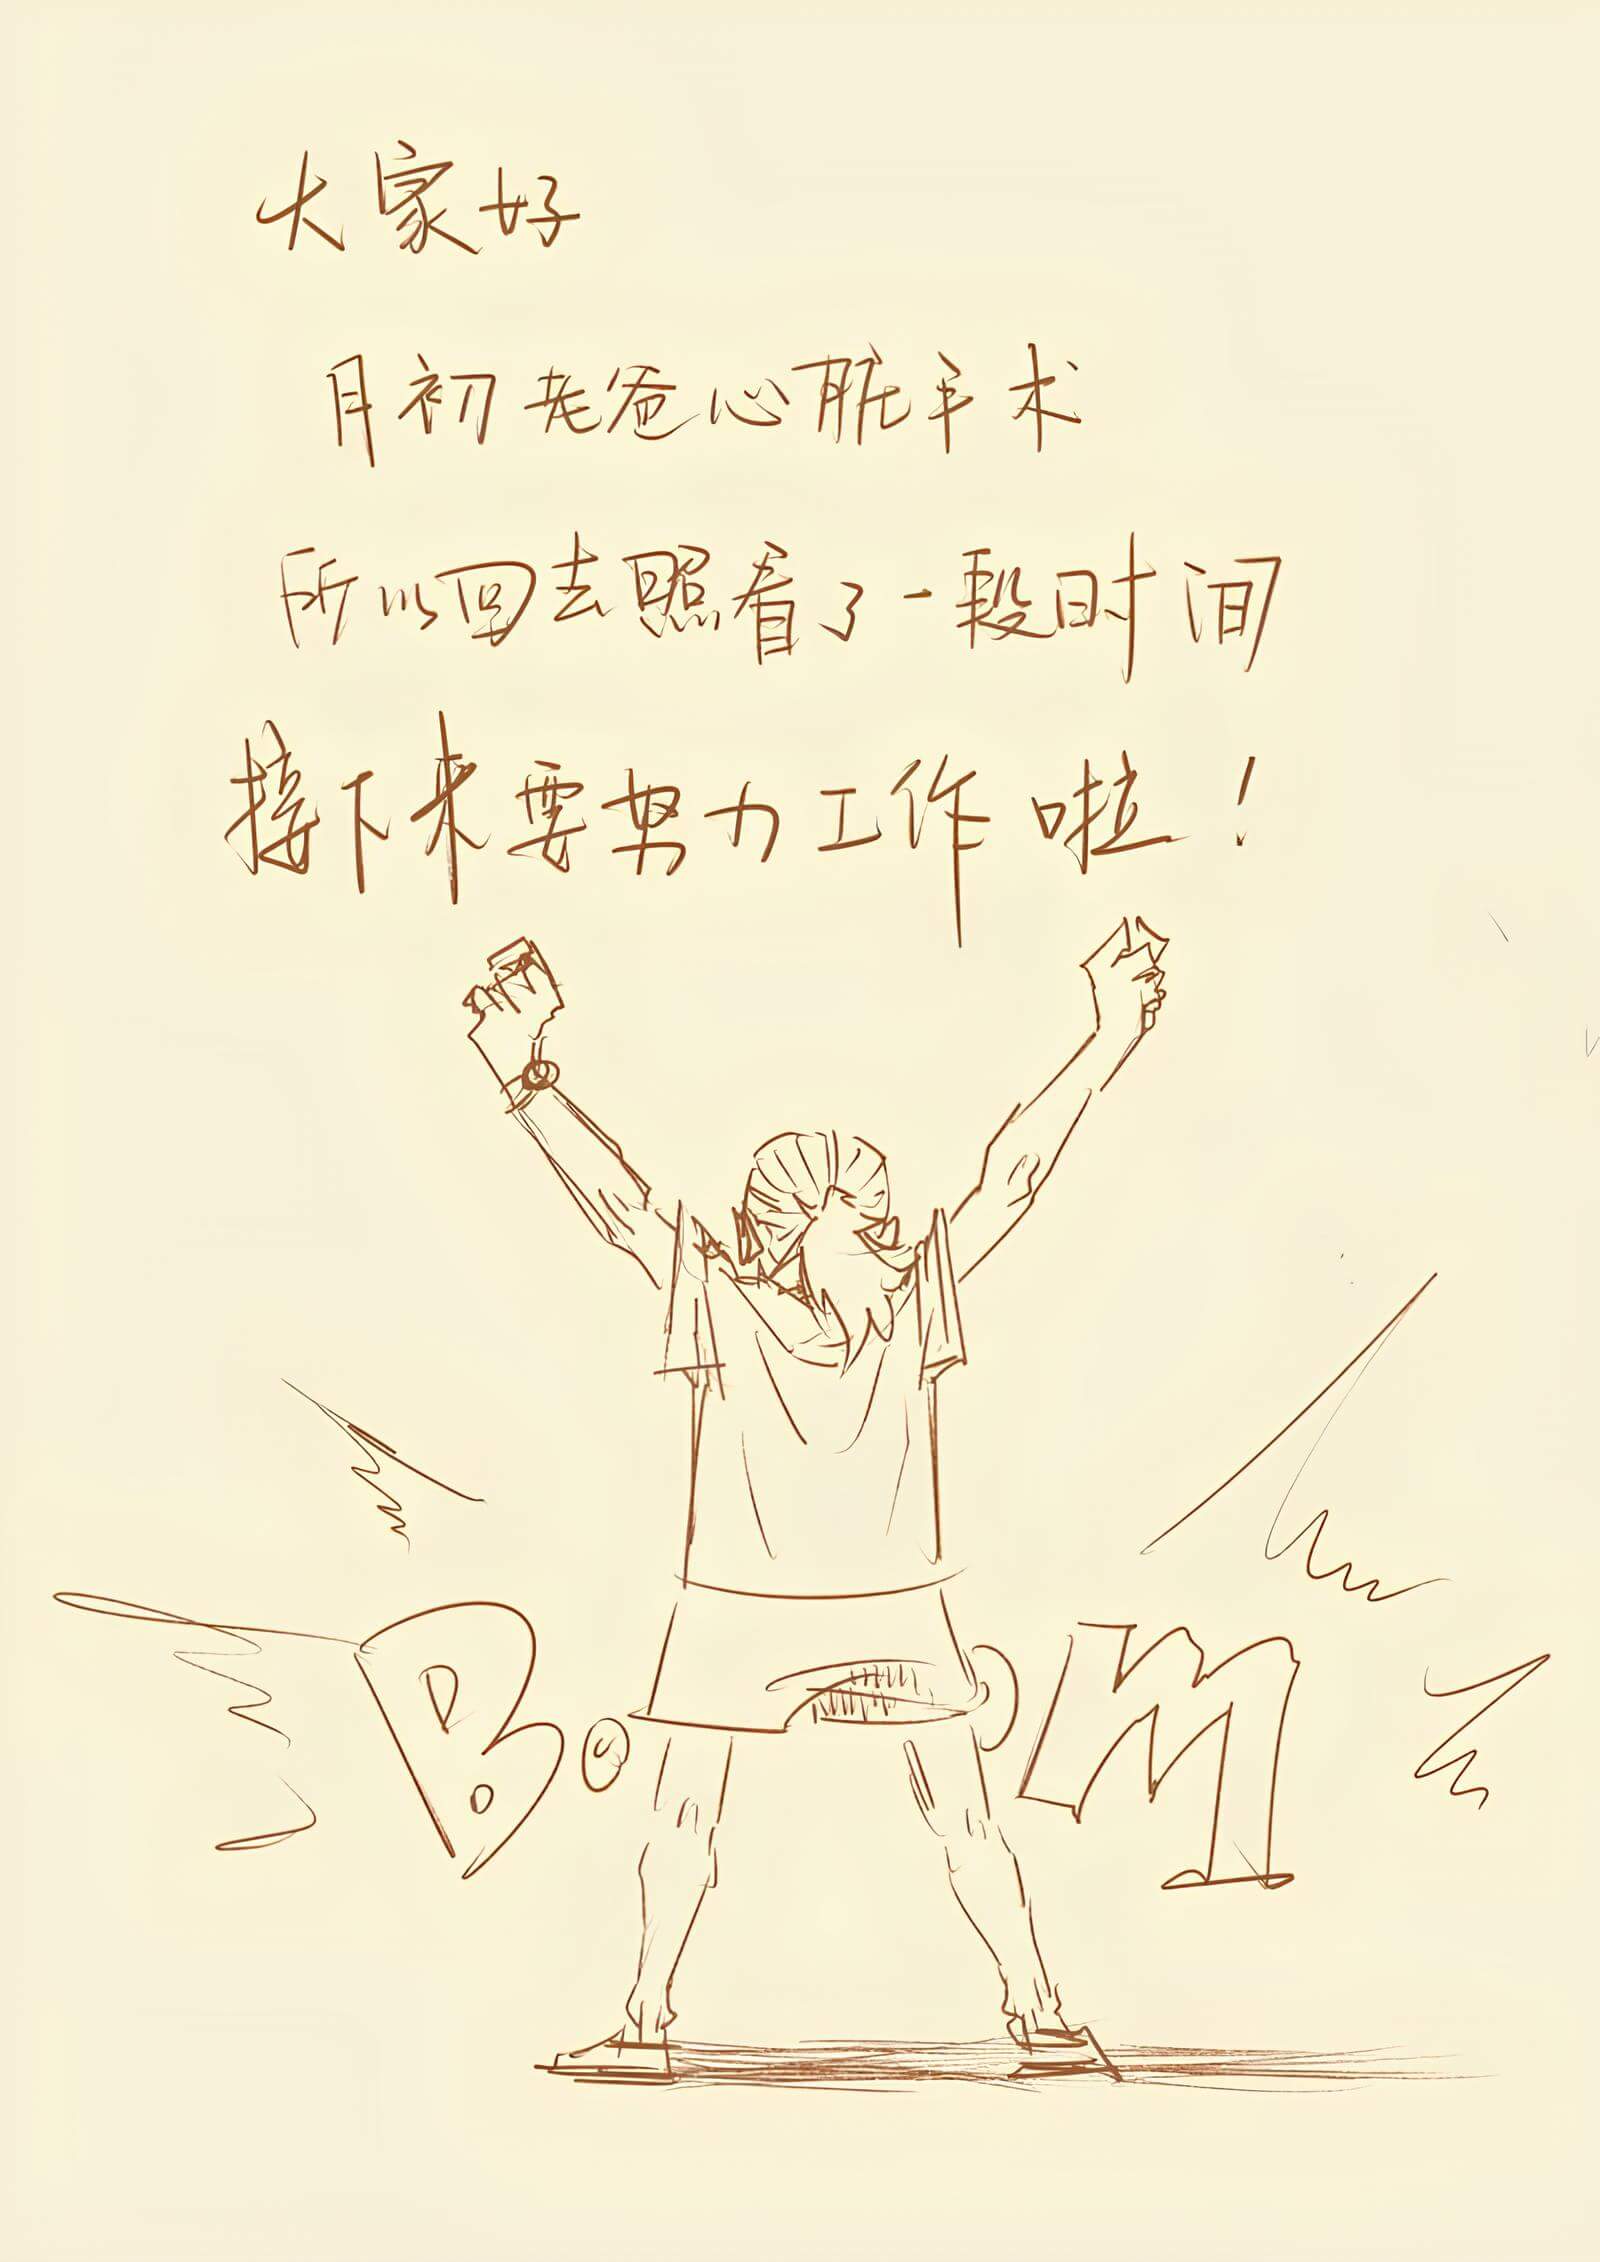 大家好
月初老爸心脏手术
所以回去照看了一段时间
接下来要努力工作啦！
BOOM